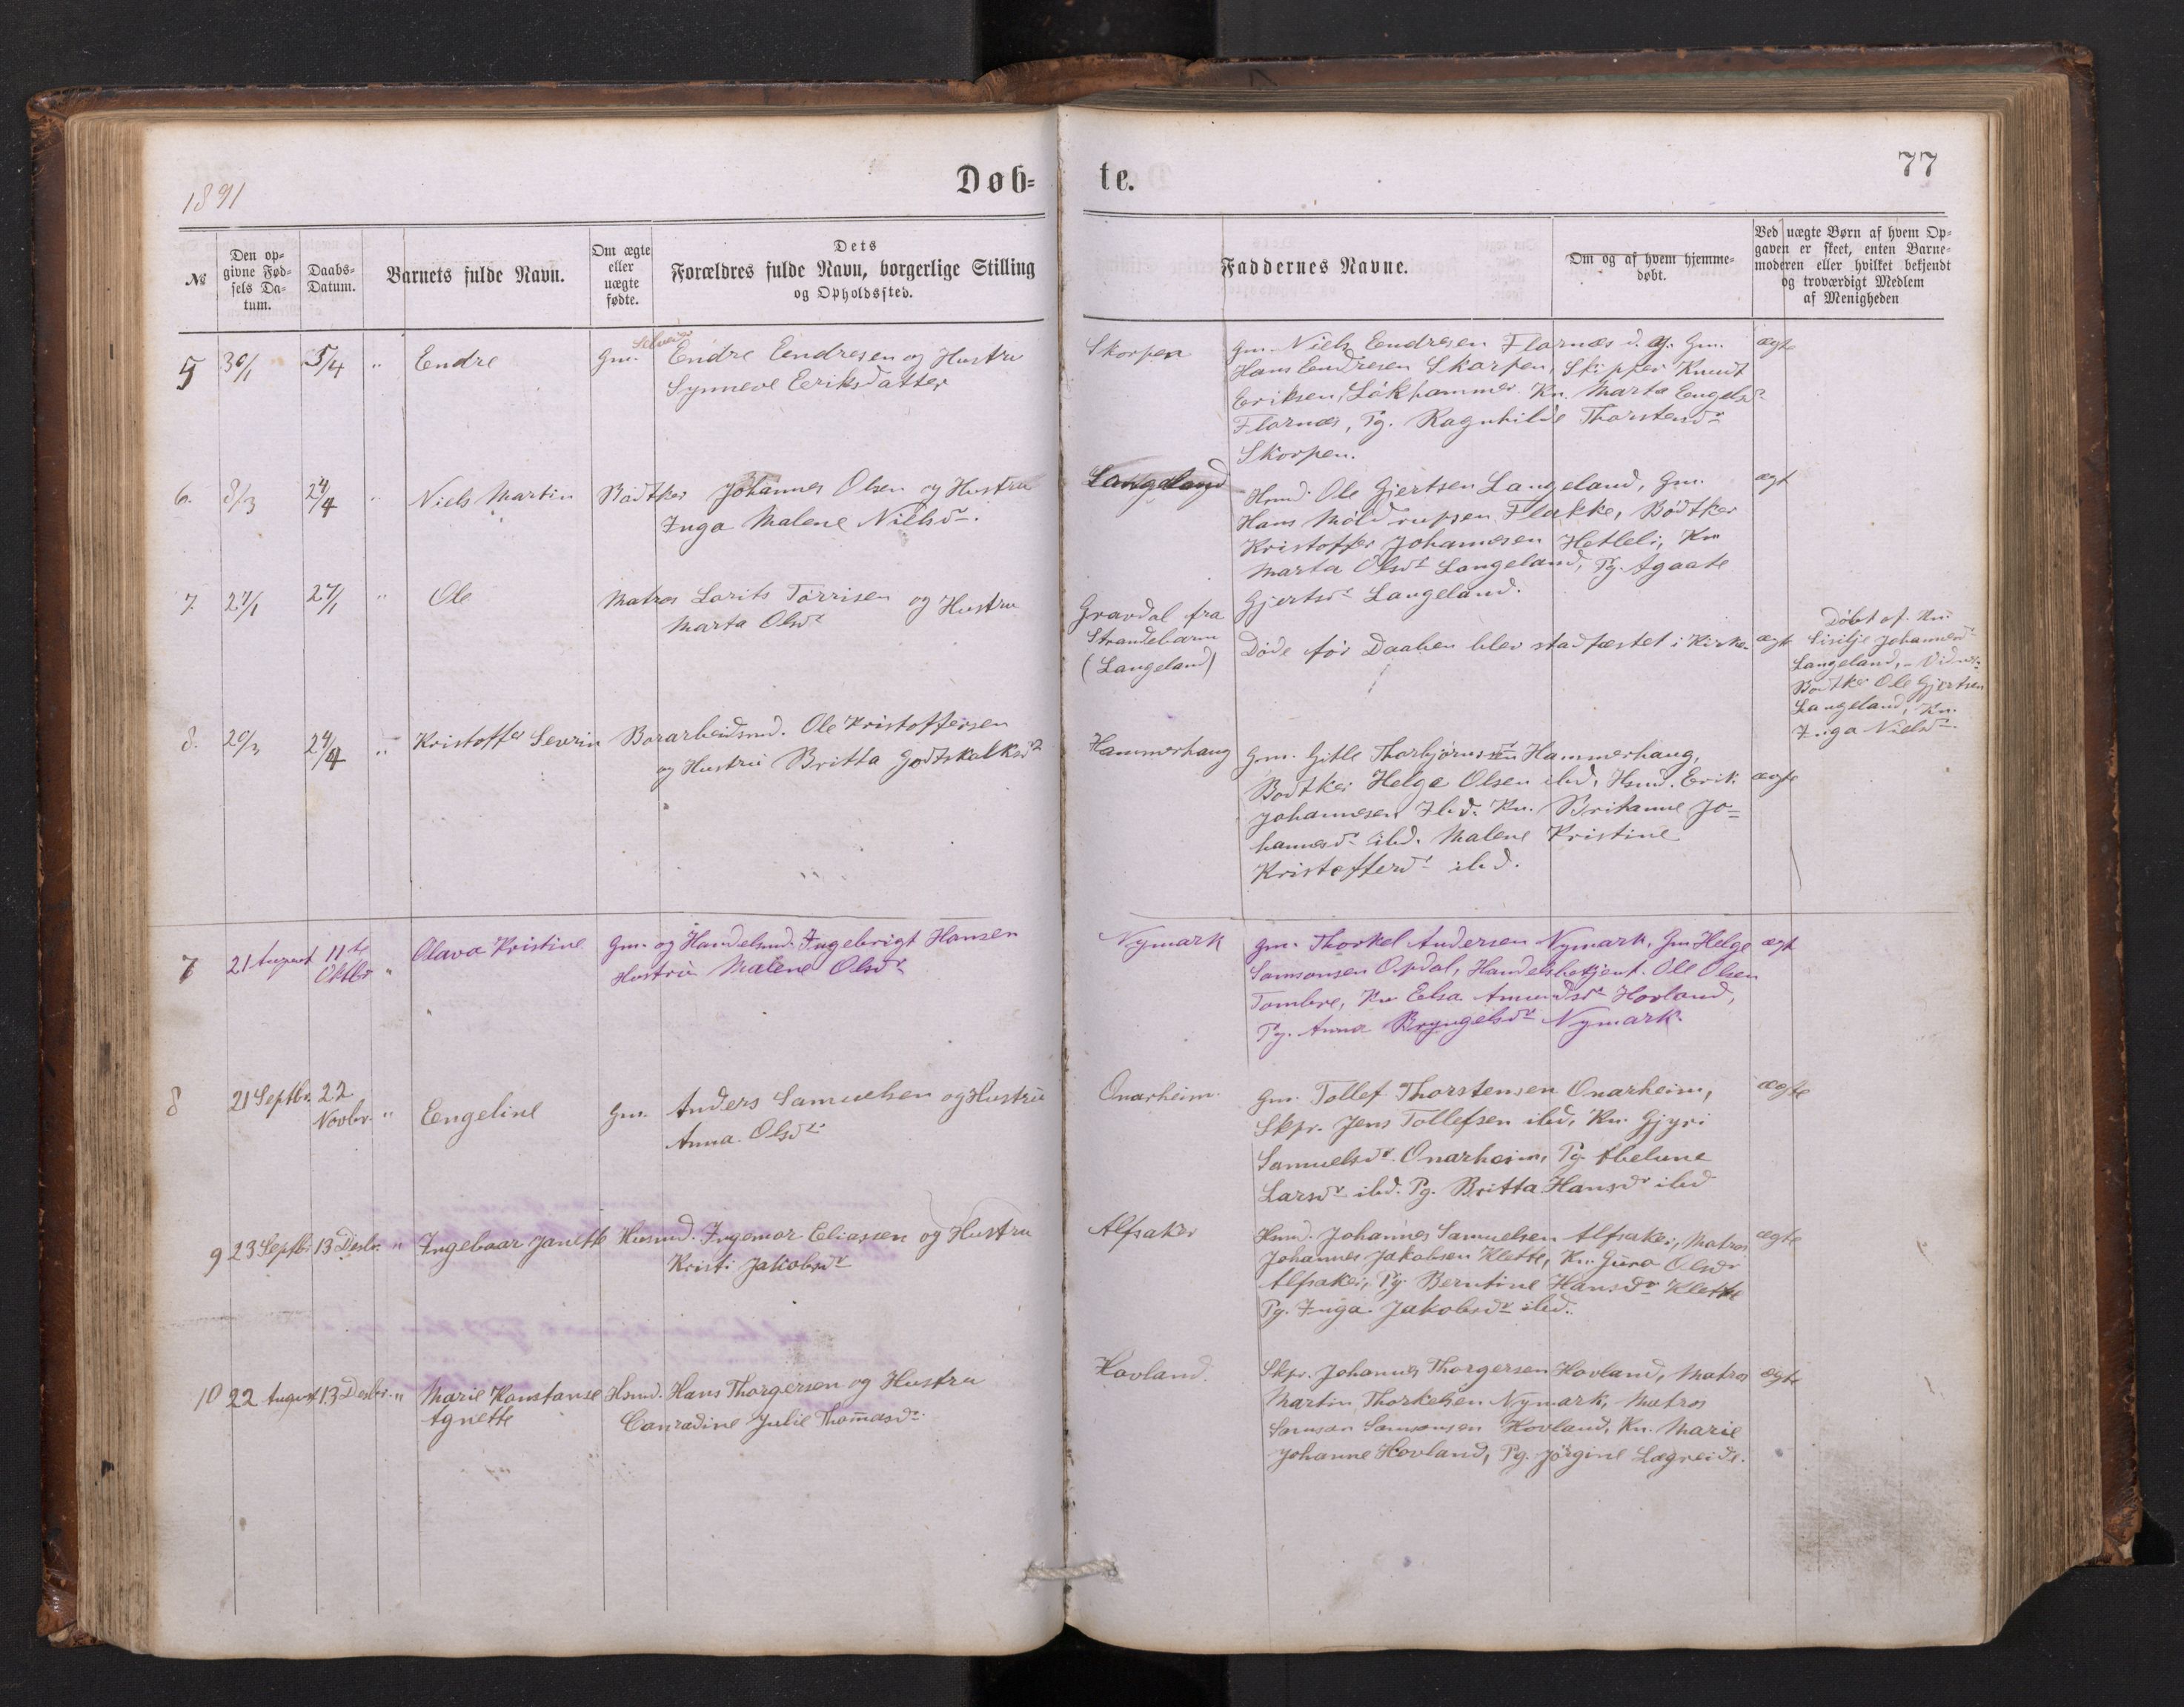 1891
Døb-
te.
77
№
Den op-
givne Fød-
sels Da-
tum.
Daabs-
Datum.
Barnets fulde Navn.
Om ægte
eller
uægte
fødte.
Dets
Forældres fulde Navn, borgerlige Stilling
og Opholdssted.
Faddernes Navne.
Om og af hvem hjemme-
døbt.
Ved uægte Børn af hvem Op-
gaven er skeet, enten Barne-
moderen eller hvilket bekjendt
og troværdigt Medlem
af Menigheden
5 30/1 5/4 " Endre Gm. Endre Eendresen og Hustru
Synneve Eeriksdatter
Skorpen
Gm. Niels Eendresen Flornæs d. y. Gm.
Hans Eendresen Skorpen, Skipper Knut
Eeriksen, Løkhammer Kn. Marta Eengelsdr
Flornæs, Pg. Ragnhilde Thorstensdr
Skorpen.
ægte
6. 8/3 24/4 " Niels Martin Bødtker Johannes Olsen og Hustru
Inga Malene Nielsdr.
Langeland
Hmd. Ole Gjertsen Langeland, Gm.
Hans Møldrupsen Flakke, Bødtker
Kristoffer Johannesen Hetleli, Kn
Marta Olsdr Langeland, Pg. Agaate
Gjertsdr Langeland.
ægt
7. 27/1 27/1 " Ole Matros Lorits Tørrisen og Hustru
Marta Olsdr
Gravdal fra
Strandebarm
(Langeland)
Døde før Daaben blev stadfæstet i Kirken
ægt
Døbt af Kn.
Sisilje Johannesdr
Langeland, Vidner:
Bødtker Ole Gjertsen
Langeland, Kn.
Inga Nielsdr
8. 20/3 24/4 " Kristoffer Severin Borarbeidsmd. Ole Kristoffersen
og Hustru Britta Godtskalksdr
Hammerhaug
Gm. Gitle Thorbjørnsen Hammerhaug,
Bødtker Helge Olsen ibd, Hsmd. Erik
Johannesen Ibd. Kn. Britanne Jo-
hannesdr ibd. Malene Kristine
Kristoffersdr ibd.
ægte
7 21 August 11te
Oktbr " Olava Kristine Gm. og Handelsmd. Ingebrigt Hansen
Hustru Malene Olsdr
Nymark
Gm. Thorkel Andersen Nymark, Gm Helge
Samsonsen Opdal, Handelsbetjent. Ole Olsen
Tombre, Kn Elsa Amundsdr Hovland,
Pg. Anna Bryngelsdr Nymark.
ægt
8 21 Septbr. 22
Novbr. " Eengeline Gm. Anders Samuelsen og Hustru
Anna Olsdr
Onarheim.
Gm. Tollef Thorstensen Onarheim,
Skpr. Jens Tollefsen ibd, Kn. Gjyri
Samuelsdr Onarheim, Pg. Abelune
Larsdr ibd. Pg. Britta Hansdr ibd
ægte
9 23 Septbr 13 Desbr. " Ingebaar Janette Husmd. Ingemar Eliassen og Hustru
Kristi Jakobsdr
Alfsaker
Hsmd. Johannes Samuelsen Alfsaker, Matros
Johannes Jakobsen Klette, Kn. Guro Olsdr
Alfsaker, Pg. Berntine Hansdr Klette
Pg. Inga Jakobsdr ibd.
ægte
10 22 August 13 Desbr. " Marie Konstanse Hsmd. Hans Thorgersen og Hustru
Agnette Conradine Julie Thomasdr.
Hovland.
Skpr. Johannes Thorgersen Hovland, Matros
Martin Thorkelsen Nymark, Matros
Samson Samsonsen Hovland, Kn. Marie
Johanne Hovland, Pg. Jørgine Lægreide.
ægte